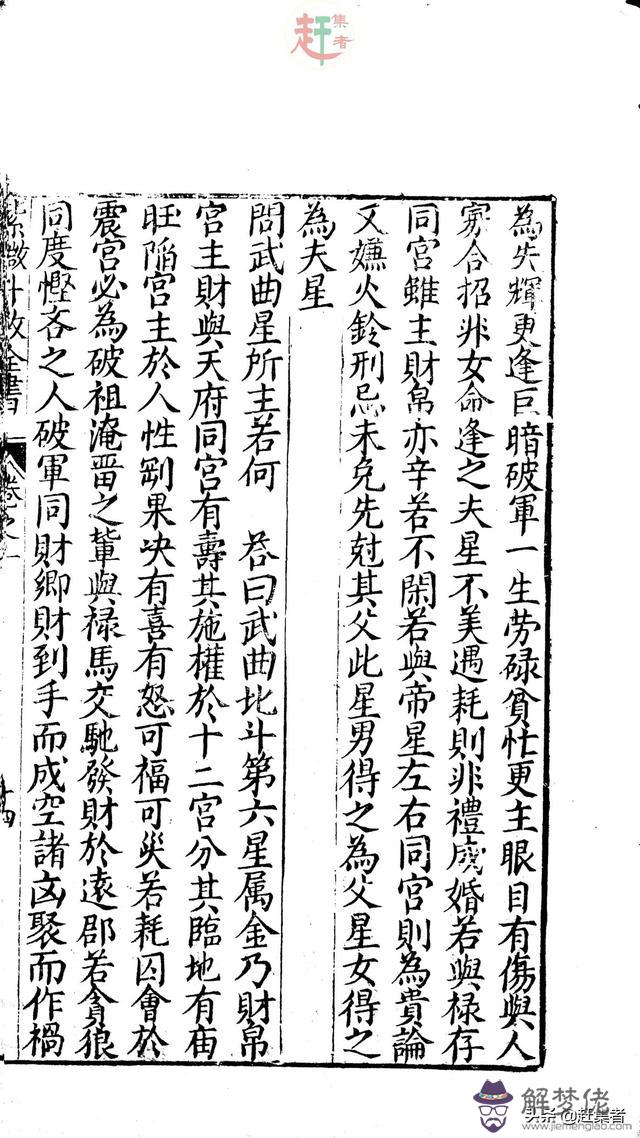 赶集者
為失輝更逢巨暗破軍一生劳碌貧忙更主眼目有傷與人
寡合招非女命逢之夫星不美遇耗則非禮成婚若與禄存
同宮雖主財帛亦辛苦不閑若與帝星左右同宮則為貴論
又嫌火鈴刑忌未免先尅其父此星男得之為父星女得之
為夫星
問武曲星所主若何 荅曰武曲北斗第六星属金乃財帛
宮主財與天府同宮有壽其施權於十二宮分其臨地有庙
旺陷宮主於人性剛果决有喜有怒可福可災若耗囚會於
震宮必為破祖淹畱之輩與禄馬交馳發財於遠郡若貪狼
同度慳吝之人破軍同財鄉財到手而成空諸凶聚而作禍
紫微斗数全書 卷之一
十四
头条@赶集者
解梦佬
www.jiemenglao.com